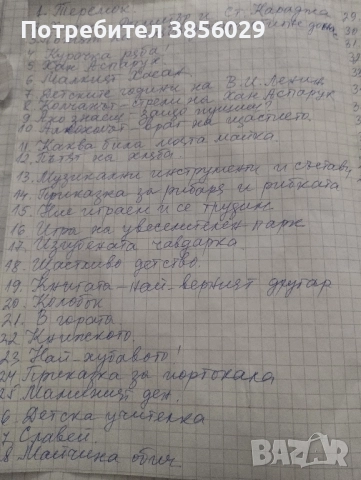 Потребител 3856029
1. Теослик
Ст. Караджа
4 Курочка ряба!
5 Хан Аспарух.
6. Малкият Косак.
7. Детските години на В.И. Ленин
8. Колчанът – стрели на Хан Аспарух
9. Ако знаеш защо пушиш?
10. Алкохолът – враг на щастието.
11. Каква била моята майка.
12. Пътят на хляба.
13. Музикални инструменти и състави
14. Приказка за рибаря и рибката
15. Ние играем и се трудим
16 Игра на увеселителен парк
17. Изгубената чавдарка
18. Щастливо детство.
19. Книгата – най-верният другар
20. Колобок
21. В гората
22 Книжското.
23 Най-хубавото!
24 Приказка за портокала
25 Маминият ден.
6 Детска учителка
7 Славей
8 Майчина обич
30
BAZAR
bg